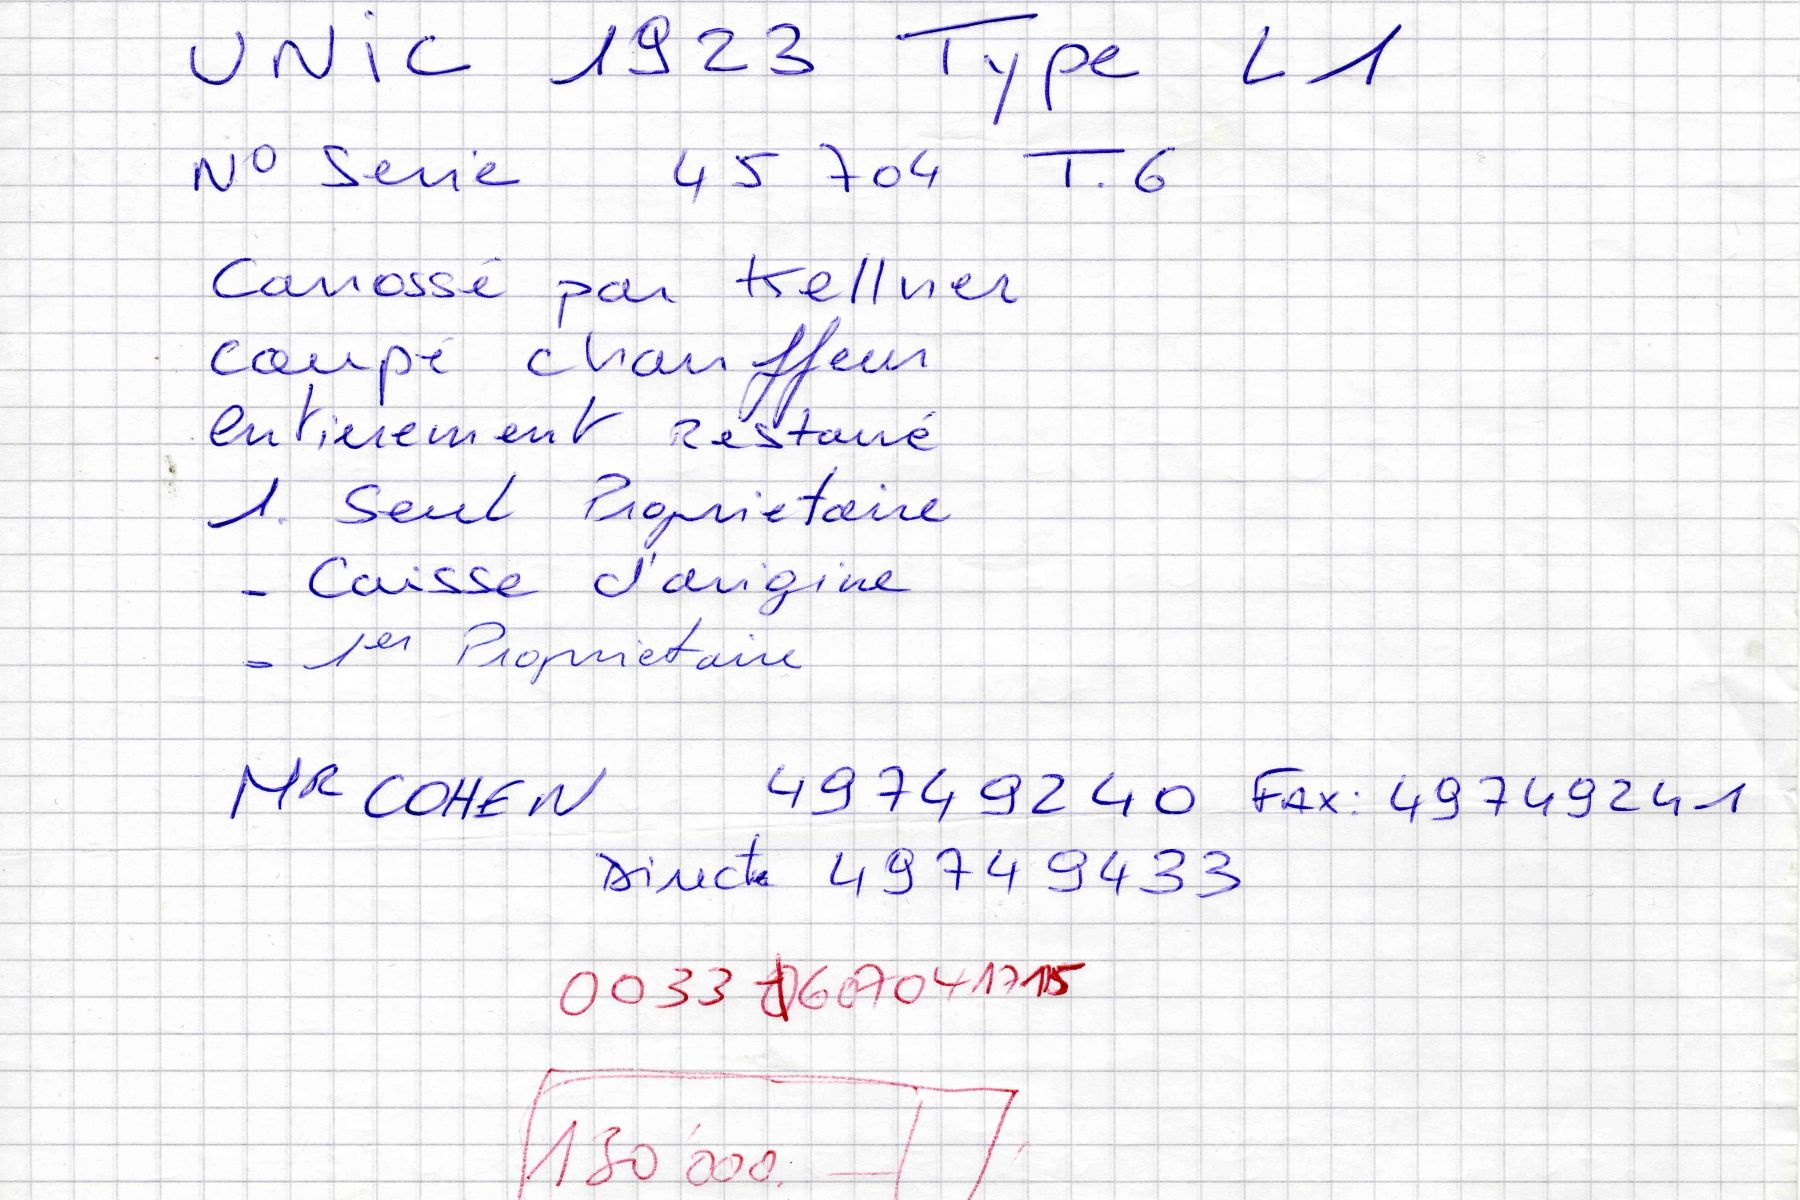 UNiC 1923 Type L1
N° Serie 45 704 T.6
Carrossé par Kellner
coupé chauffeur
entierement restauré
1. Seul Proprietaire
- Caisse d'origine
- 1er Proprietaire
MR COHEN 49749240 FAX: 49749241
Directe 49749433
0033
130'000.—